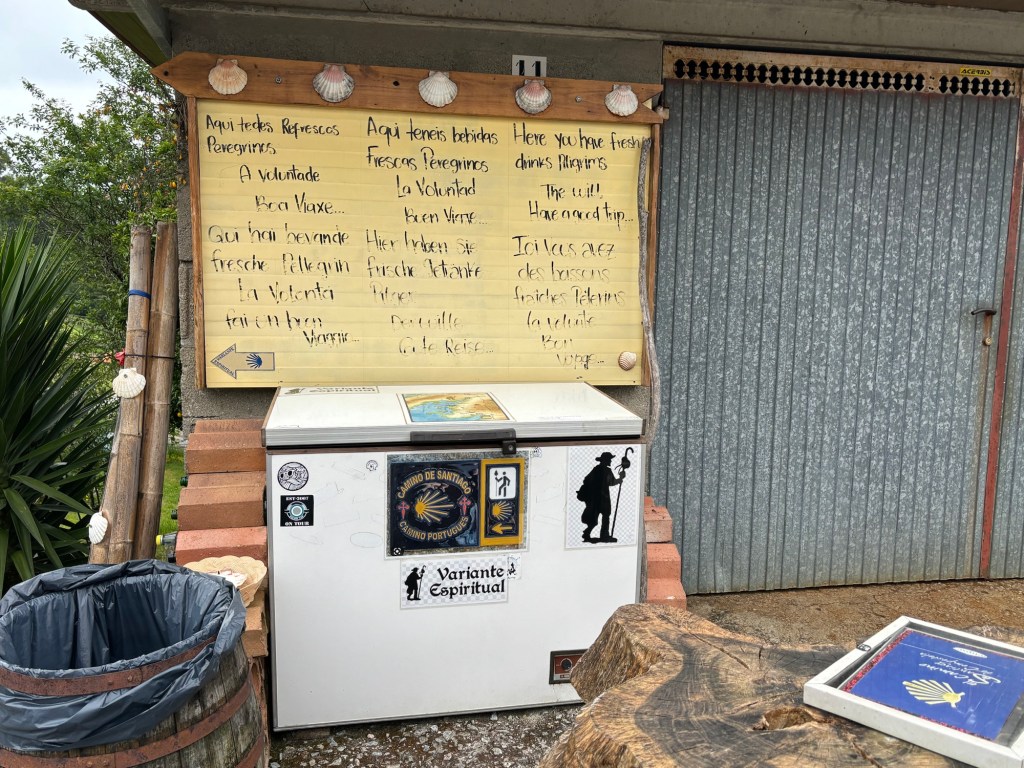 11
ACERBIS
Aqui tedes Refrescos
Peregrinos
A voluntade
Boa Viaxe...
Aqui teneis bebidas
Frescas Peregrinos
La Voluntad
Buen Viaje...
Here you have fresh
drinks Piligrims
The will
Have a good trip...
Qui hai bevande
fresche Pellegrin
La Volontá
fai un bon
Viaggie...
Hier haben sie
frische Getränke
Pilger
Gute Reise...
Ici vous avez
des boissons
fraiches Pèlerins
la volonte
Bon
voyage...
Variante
Espiritual
CAMINO DE SANTIAGO
CAMINO PORTUGUES
EST-2007
ON TOUR
Variante
Espiritual
El Camino